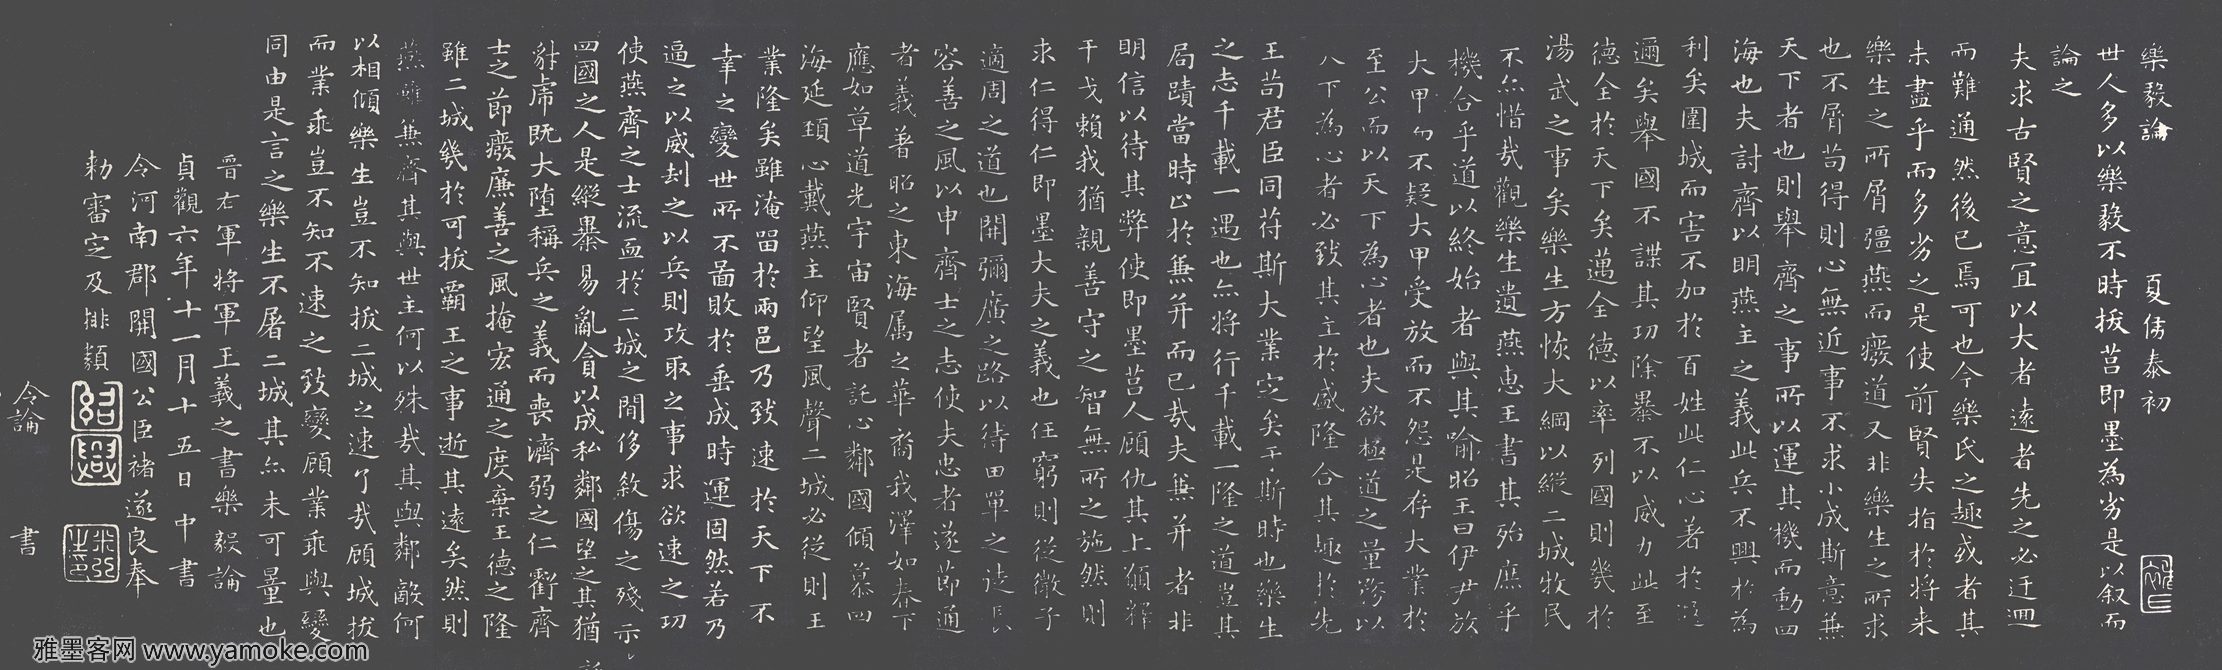 樂毅論 夏侯泰初
世人多以樂毅不時拔莒即墨為劣是以叙而
論之
夫求古賢之意宜以大者遠者先之必迂迴
而難通然後已焉可也今樂氏之趣或者其
未盡乎而多劣之是使前賢失指於将来
樂生之所屑彊燕而廢道又非樂生之所求
也不屑苟得則心無近事不求小成斯意兼
天下者也則舉齊之事所以運其機而動四
海也夫討齊以明燕主之義此兵不興於為
利矣圍城而害不加於百姓此仁心著於遐
邇矣舉國不謀其功除暴不以威力此至
德全於天下矣邁全德以率列國則幾於
湯武之事矣樂生方恢大綱以縱二城牧民
不亦惜哉觀樂生遺燕惠王書其殆庶乎
機合乎道以終始者與其喻昭王曰伊尹放
大甲而不疑大甲受放而不怨是存大業於
至公而以天下為心者也夫欲極道之量務以
天下為心者必致其主於盛隆合其趣於先
王苟君臣同苻斯大業定矣于斯時也樂生
之志千載一遇也亦将行千載一隆之道豈其
局蹟當時止於兼并而已哉夫兼并者非
明信以待其弊使即墨莒人顧仇其上願釋
干戈賴我猶親善守之智無所之施然則
求仁得仁即墨大夫之義也任窮則從微子
適周之道也開彌廣之路以待田單之徒長
容善之風以申齊士之志使夫忠者遂節通
者義著昭之東海属之華裔我澤如春下
應如草道光宇宙賢者託心鄰國傾慕四
海延頚心戴燕主仰望風聲二城必從則王
業隆矣雖淹留於兩邑乃致速於天下不
幸之變世所不啚敗於垂成時運固然若乃
逼之以威刦之以兵則攻取之事求欲速之功
使燕齊之士流血於二城之間侈敘傷之殘示
四國之人是縱暴易亂貪以成私鄰國望之其猶
豺虎既大堕稱兵之義而喪濟弱之仁虧齊
士之節癈廉善之風掩宏通之度棄王德之隆
雖二城幾於可拔霸王之事逝其遠矣然則
燕雖兼齊其與世主何以殊哉其與鄰敵何
以相傾樂生豈不知拔二城之速了哉顧城拔
而業乖豈不知不速之致變顧業乖與變
同由是言之樂生不屠二城其亦未可量也
晉右軍將軍王羲之書樂毅論
貞觀六年十一月十五日中書
令河南郡開國公臣褚遂良奉
勑審定及排類
令論 書
雅墨客网 www.yamoke.com